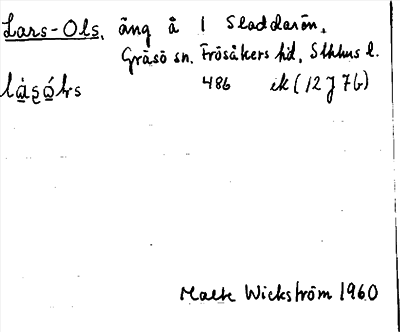 Lars-Ols, äng å 1 Sladdarön,
Gräsö sn. Frösåkers hd, Sthlms l.
lạ̀ṣọ́ḷs 486 ek (12 J 7 b)
Malte Wickström 1960